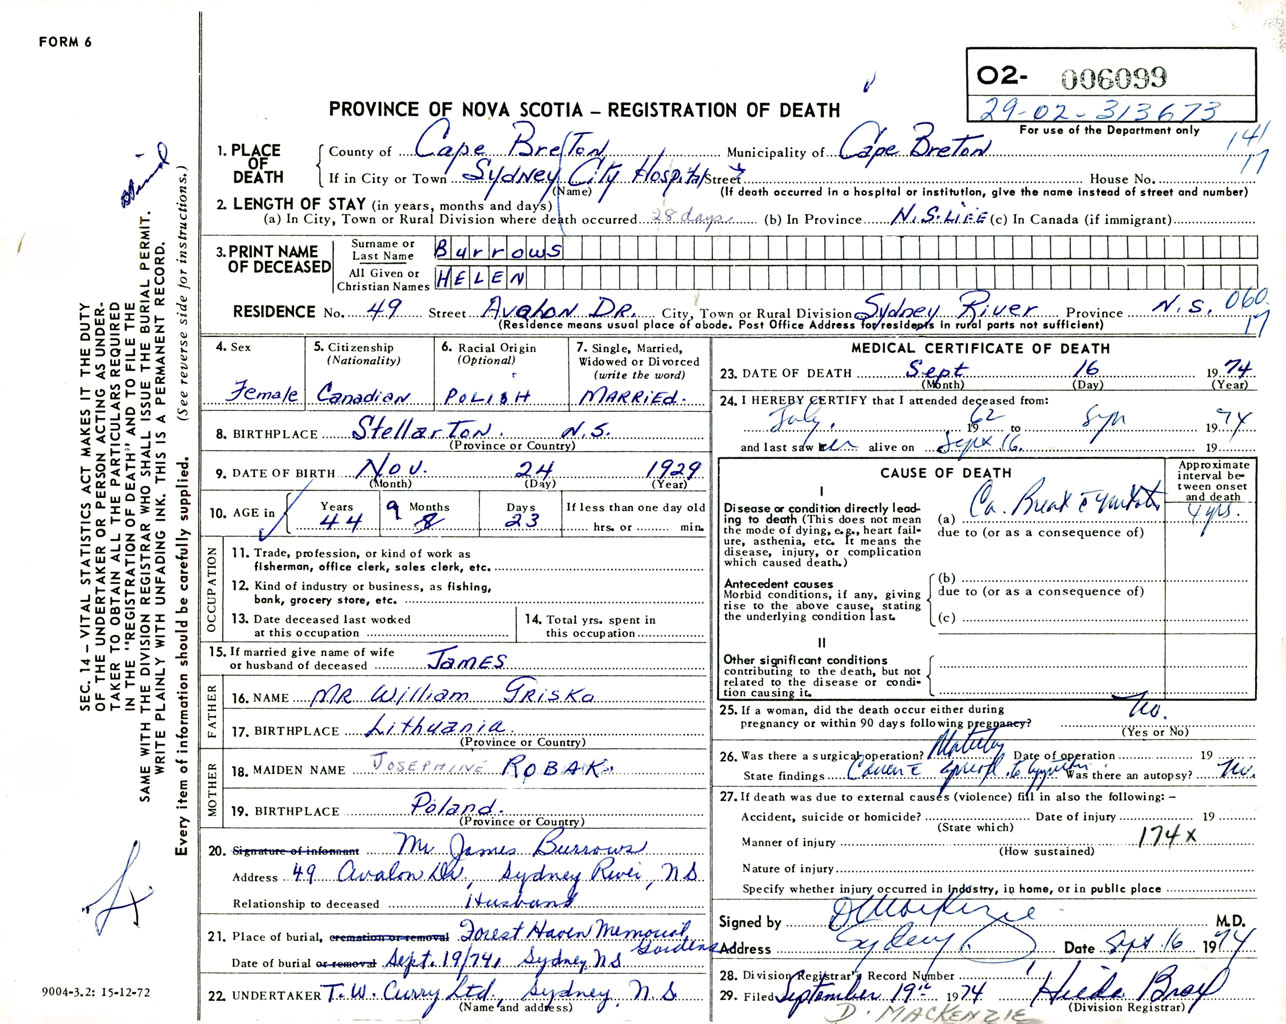 FORM 6
O2- 006099
29-02-313673
For use of the Department only
PROVINCE OF NOVA SCOTIA – REGISTRATION OF DEATH
141
17
1. PLACE OF DEATH
County of Cape Breton Municipality of Cape Breton
If in City or Town Sydney City Hospital Street House No.
(Name) (If death occurred in a hospital or institution, give the name instead of street and number)
2. LENGTH OF STAY (in years, months and days)
(a) In City, Town or Rural Division where death occurred 28 days (b) In Province N.S. LIFE (c) In Canada (if immigrant)
3. PRINT NAME OF DECEASED
Surname or Last Name Burrows
All Given or Christian Names HELEN
RESIDENCE No. 49 Street Avalon DR. City, Town or Rural Division Sydney River Province N.S. 060
17
(Residence means usual place of abode. Post Office Address for residents in rural parts not sufficient)
4. Sex Female
5. Citizenship (Nationality) Canadian
6. Racial Origin (Optional) POLISH
7. Single, Married, Widowed or Divorced (write the word) MARRIED.
8. BIRTHPLACE Stellarton. N.S.
(Province or Country)
9. DATE OF BIRTH Nov. 24 1929
(Month) (Day) (Year)
10. AGE in Years 44 Months 9 8 Days 23 If less than one day old
hrs. or min.
OCCUPATION
11. Trade, profession, or kind of work as
fisherman, office clerk, sales clerk, etc.
12. Kind of industry or business, as fishing,
bank, grocery store, etc.
13. Date deceased last worked
at this occupation
14. Total yrs. spent in
this occupation
15. If married give name of wife
or husband of deceased JAMES
FATHER
16. NAME MR William Triska
17. BIRTHPLACE Lithuania.
(Province or Country)
MOTHER
18. MAIDEN NAME JOSEPHINE ROBAK.
19. BIRTHPLACE Poland.
(Province or Country)
20. Signature of informant Mr James Burrows
Address 49 Avalon Dr., Sydney River, NS
Relationship to deceased Husband
21. Place of burial, cremation or removal Forest Haven Memorial
Gardens
Date of burial or removal Sept. 19/74, Sydney, NS
22. UNDERTAKER T.W. Curry Ltd., Sydney, N.S.
(Name and address)
MEDICAL CERTIFICATE OF DEATH
23. DATE OF DEATH Sept 16 1974
(Month) (Day) (Year)
24. I HEREBY CERTIFY that I attended deceased from:
July, 1962 to 1974
and last saw er alive on Sept 16. 19
CAUSE OF DEATH
Approximate interval between onset and death
I
Disease or condition directly leading
to death (This does not mean
the mode of dying, e.g., heart failure,
asthenia, etc. It means the
disease, injury, or complication
which caused death.)
(a) Ca. Breast 4 yrs.
due to (or as a consequence of)
Antecedent causes
Morbid conditions, if any, giving
rise to the above cause, stating
the underlying condition last.
(b)
due to (or as a consequence of)
(c)
II
Other significant conditions
contributing to the death, but not
related to the disease or condition
causing it.
25. If a woman, did the death occur either during
pregnancy or within 90 days following pregnancy? No.
(Yes or No)
26. Was there a surgical operation? Date of operation 19
State findings Was there an autopsy? No.
27. If death was due to external causes (violence) fill in also the following: –
Accident, suicide or homicide? Date of injury 19
(State which)
Manner of injury 174x
(How sustained)
Nature of injury
Specify whether injury occurred in Industry, in home, or in public place
Signed by D MacKenzie M.D.
Address Sydney. Date Sept 16 1974
28. Division Registrar's Record Number
29. Filed September 19th 1974 Hilda Bray
(Division Registrar)
D. MACKENZIE
SEC. 14 – VITAL STATISTICS ACT MAKES IT THE DUTY
OF THE UNDERTAKER OR PERSON ACTING AS UNDER-
TAKER TO OBTAIN ALL THE PARTICULARS REQUIRED
IN THE "REGISTRATION OF DEATH" AND TO FILE THE
SAME WITH THE DIVISION REGISTRAR WHO SHALL ISSUE THE BURIAL PERMIT.
WRITE PLAINLY WITH UNFADING INK. THIS IS A PERMANENT RECORD.
Every item of information should be carefully supplied. (See reverse side for instructions.)
9004-3.2: 15-12-72